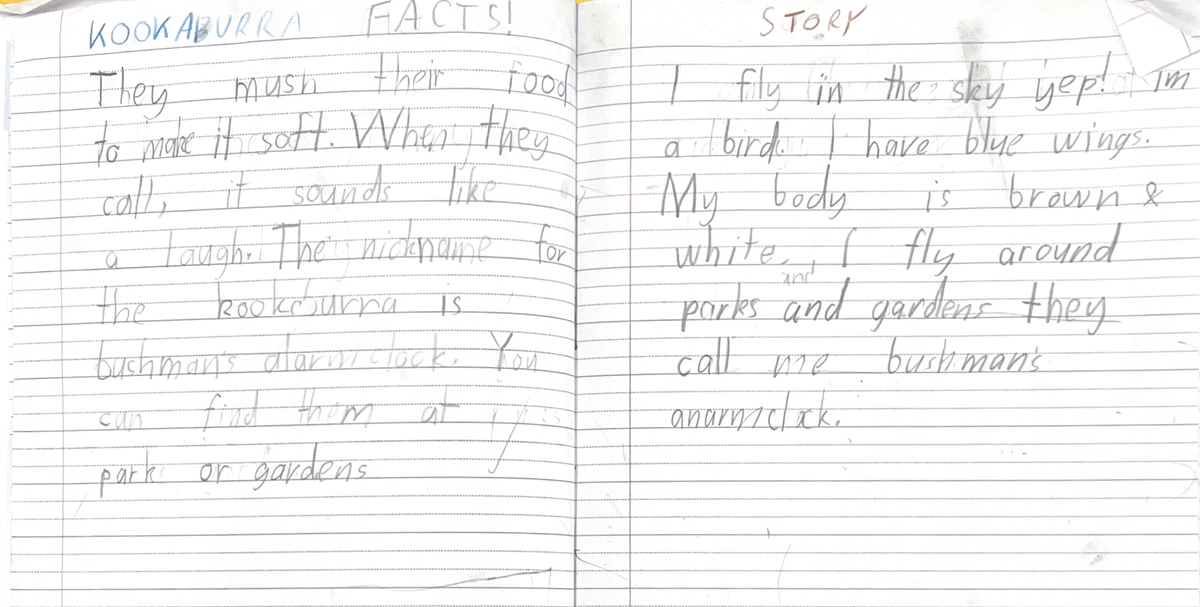 KOOKABURRA FACTS!
They mush their food
to make it soft. When they
call, it sounds like
a laugh. The nickname for
the kookaburra is
bushman's alarm clock. You
can find them at
park or gardens
STORY
I fly in the sky yep! im
a bird. I have blue wings.
My body is brown &
white. I fly around
and
parks and gardens they
call me bushman's
anarmclock.